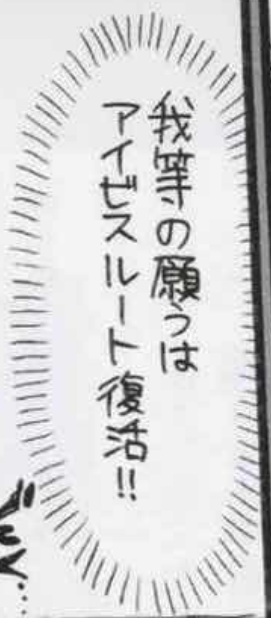 我等の願うは
アイゼスルート復活!!